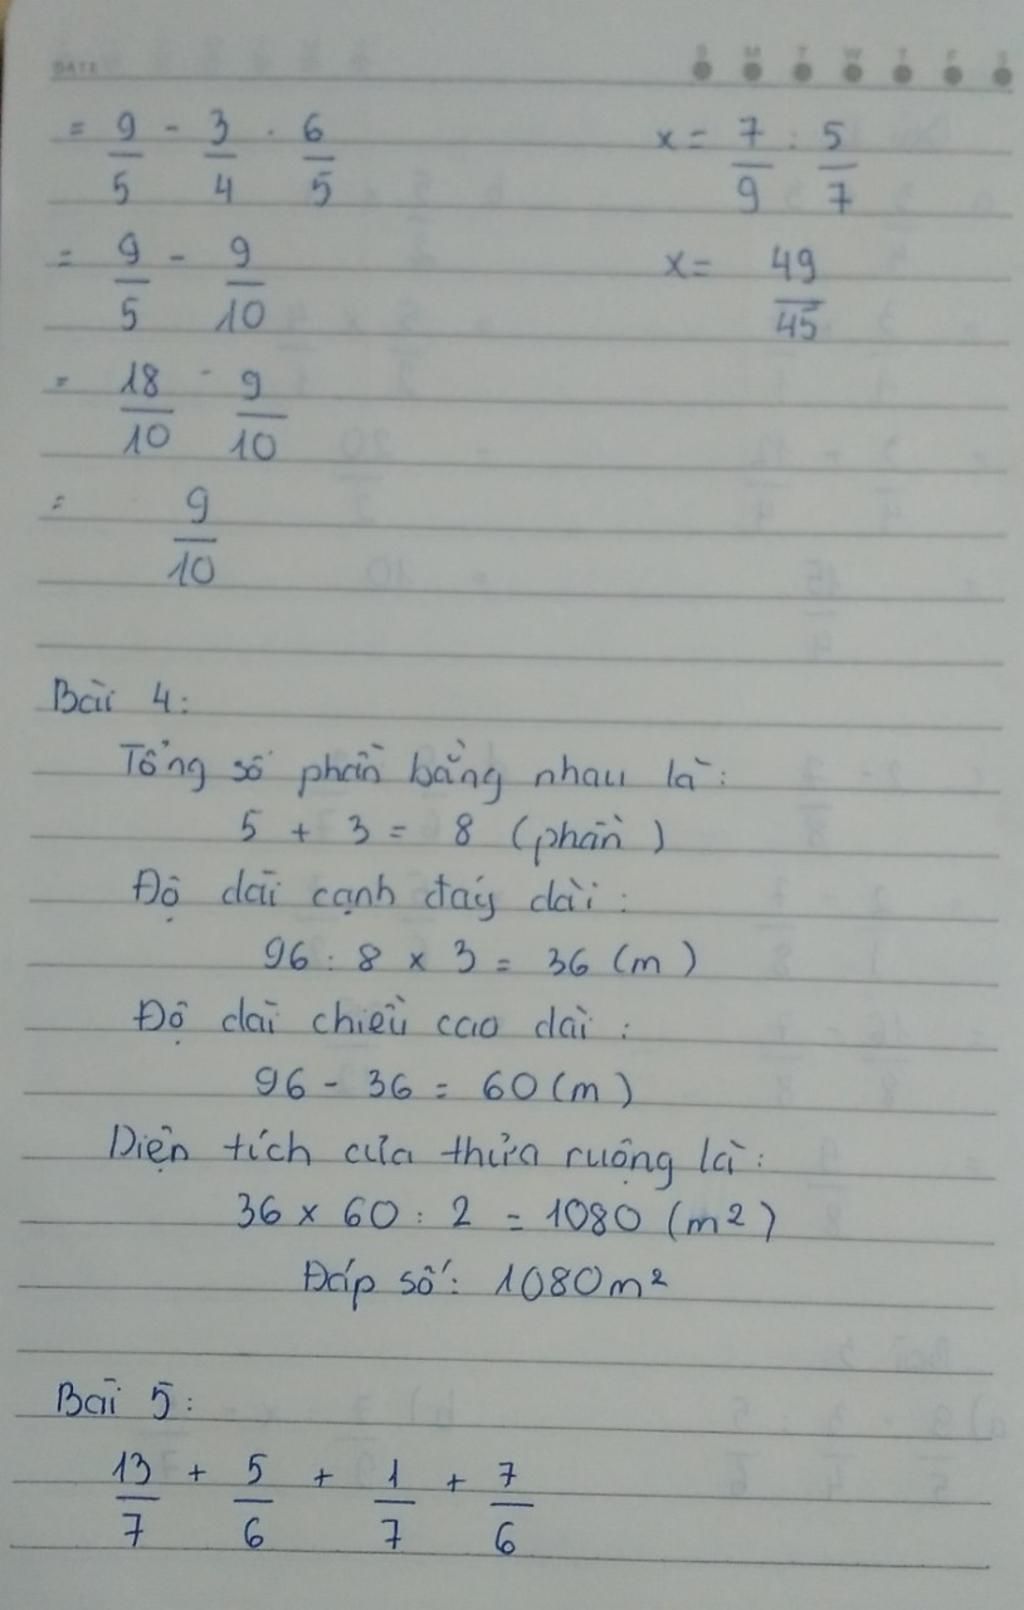 DATE S M T W T F S
= 9/5 - 3/4 . 6/5
= 9/5 - 9/10
= 18/10 - 9/10
= 9/10
x = 7/9 : 5/7
x = 49/45
Bài 4:
Tổng số phần bằng nhau là:
5 + 3 = 8 (phần)
Độ dài cạnh đáy dài:
96 : 8 x 3 = 36 (m)
Độ dài chiều cao dài:
96 - 36 = 60 (m)
Diện tích của thửa ruộng là:
36 x 60 : 2 = 1080 (m²)
Đáp số: 1080m²
Bài 5:
13/7 + 5/6 + 1/7 + 7/6